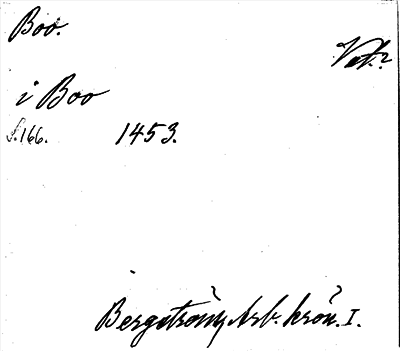 Boo.
Vet.?
i Boo
S. 166. 1453.
Bergström, Arb. krön. I.